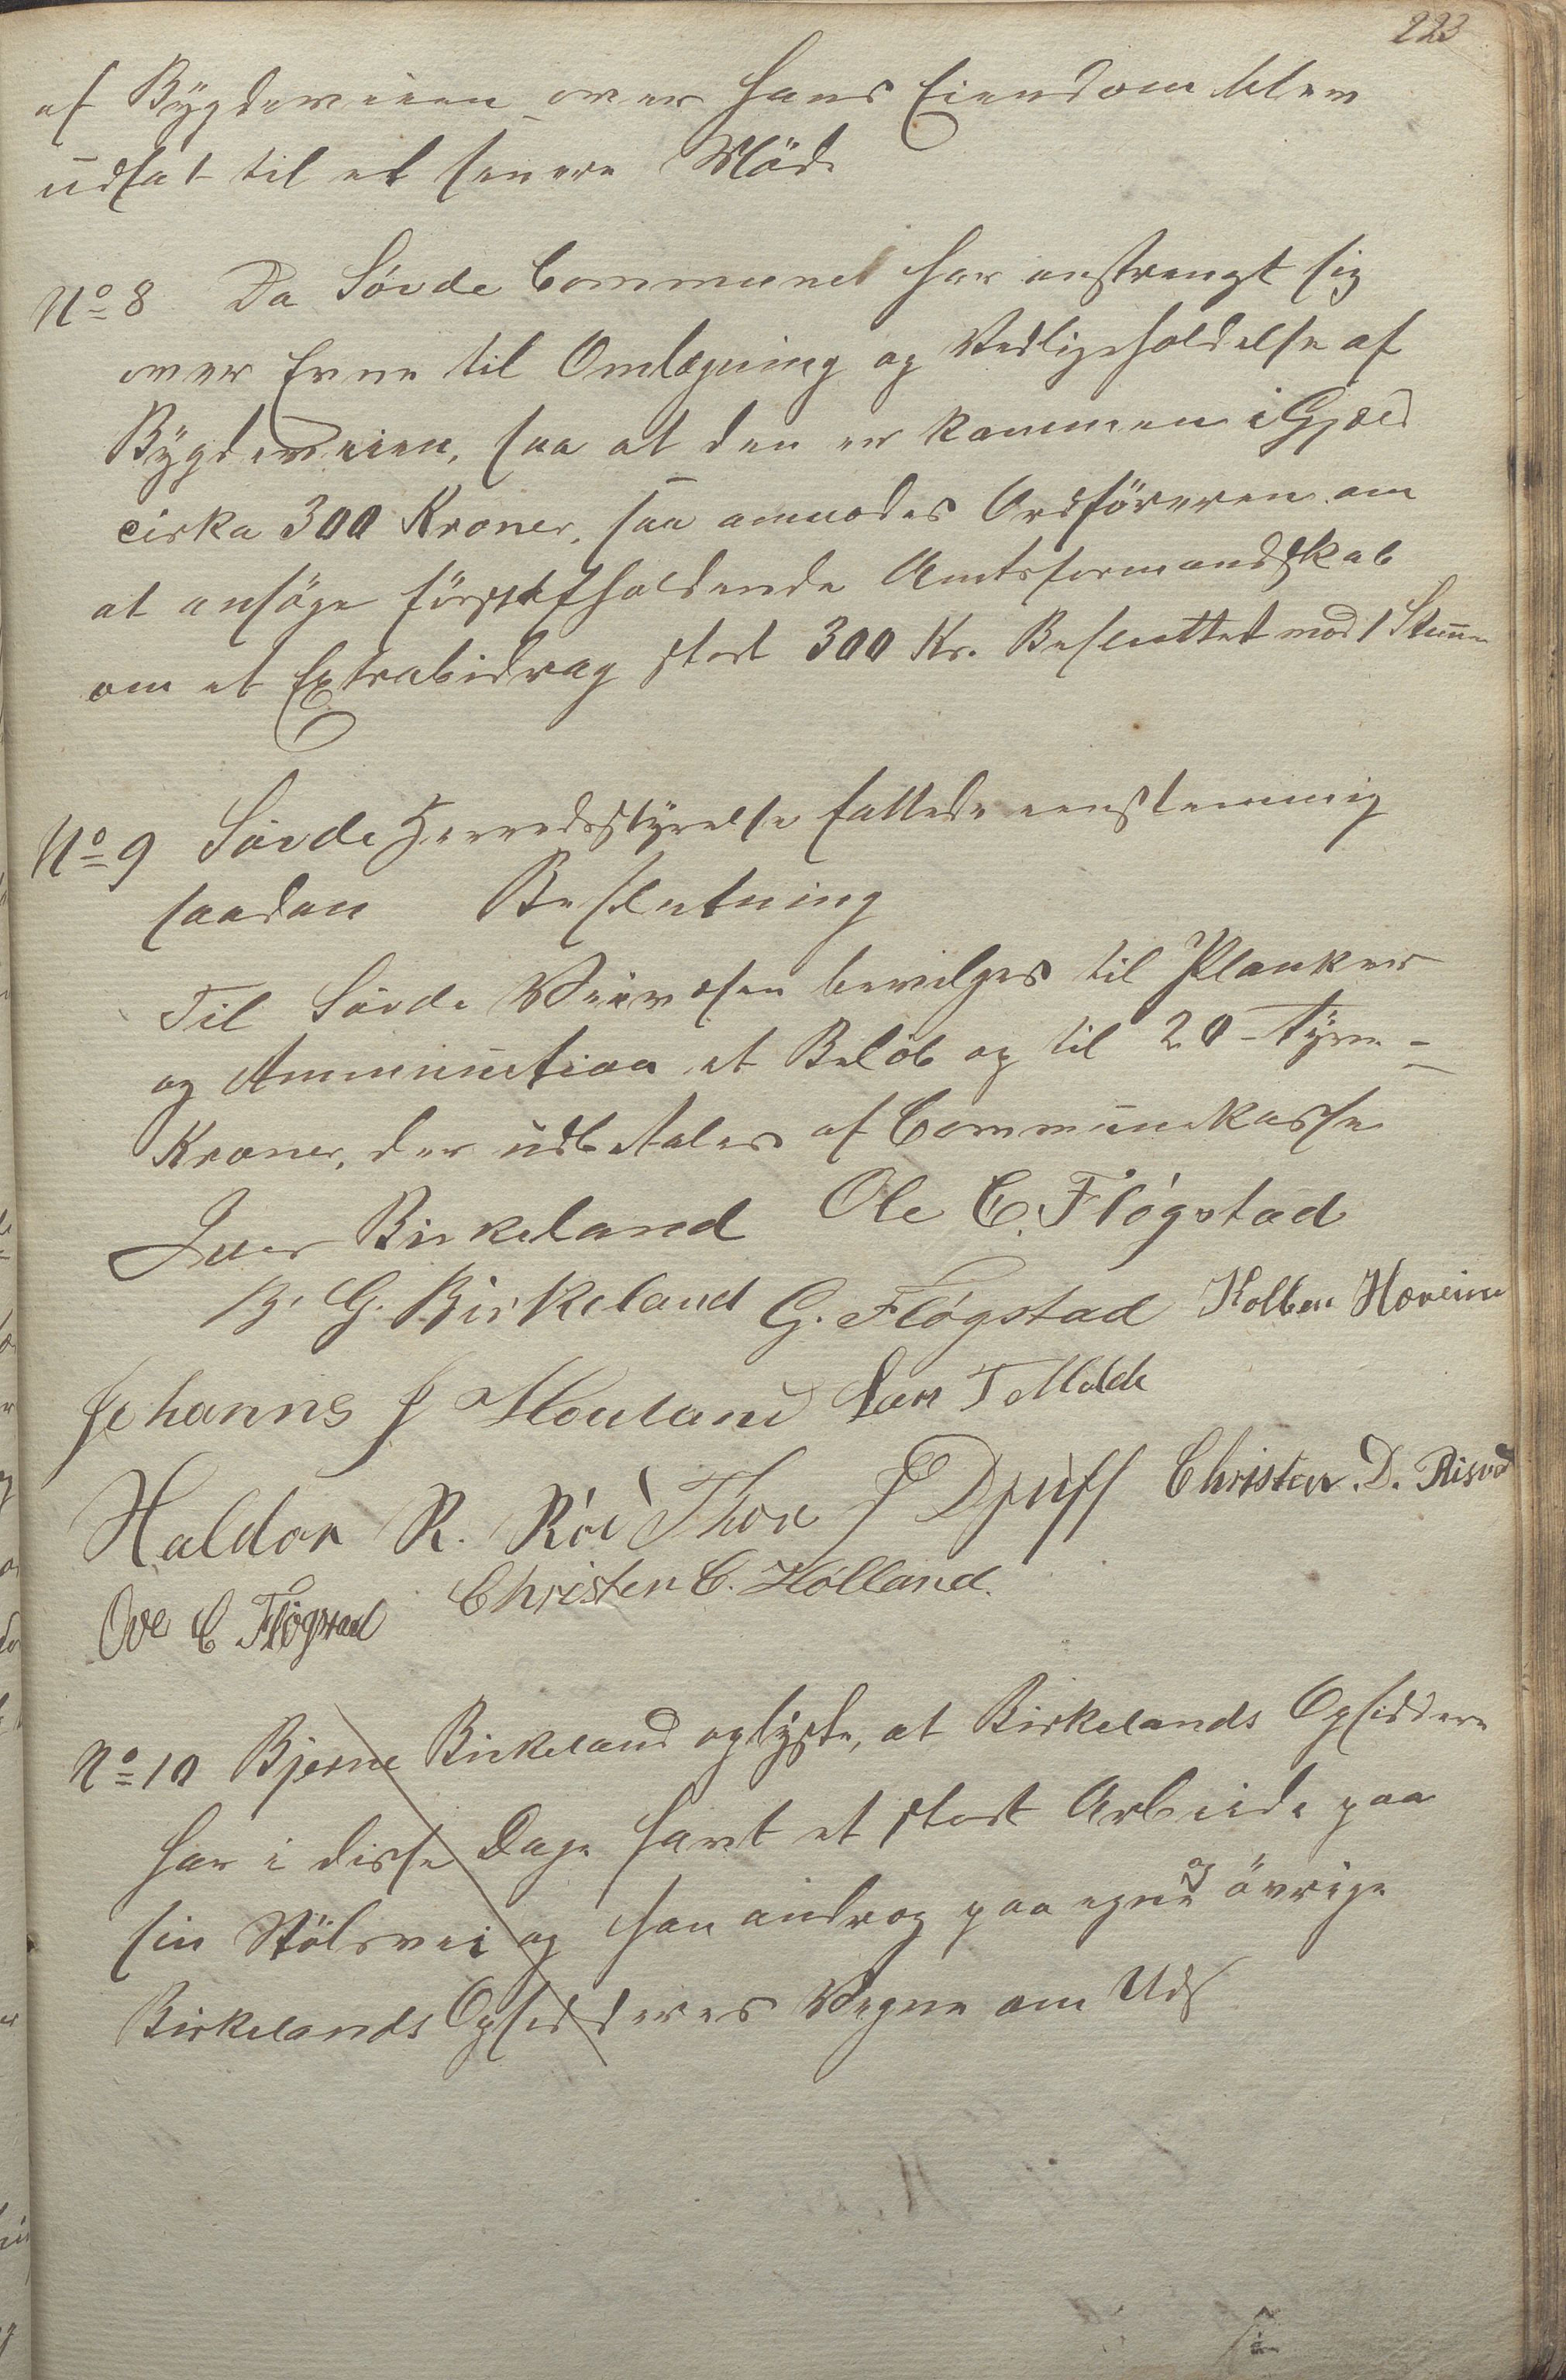 223
af Bygdeveien over hans Eiendom blev
udsat til et senere Möde
No 8 Da Søvde Commune har anstrengt sig
over Evne til Omlægning og Vedligeholdelse af
Bygdeveien, saa at den er kommen i Gjæld
cirka 300 Kroner, saa anmodes Ordföreren om
at ansöge förstafholdende Amtsformandskab
om et Extrabidrag stort 300 Kr. Besluttet mod 1 Stemme
No 9 Søvde Herredsstyrelse fattede eenstemmig
saadan Beslutning
Til Søvde Veivæsen bevilges til Planker
og Ammunition et Beløb og til 20 - tyve -
Kroner, der udbetales af Communekassen
Iver Birkeland Ole C. Fløgstad
B. G. Birkeland G. Fløgstad Kolben Hoveim
Johanns J Houland Lars T Molde
Haldor R. Röe Thore J Djuff Christen. D. Risvo
Ove C Fløgstad Christen C. Hølland.
No 10 Bjerne Birkeland oplyste, at Birkelands Opsiddere
har i disse Dage havt et stort Arbeide paa
sin Stölsvei og han androg paa egne og övrige
Birkelands Opsidderes Vegne om Uds